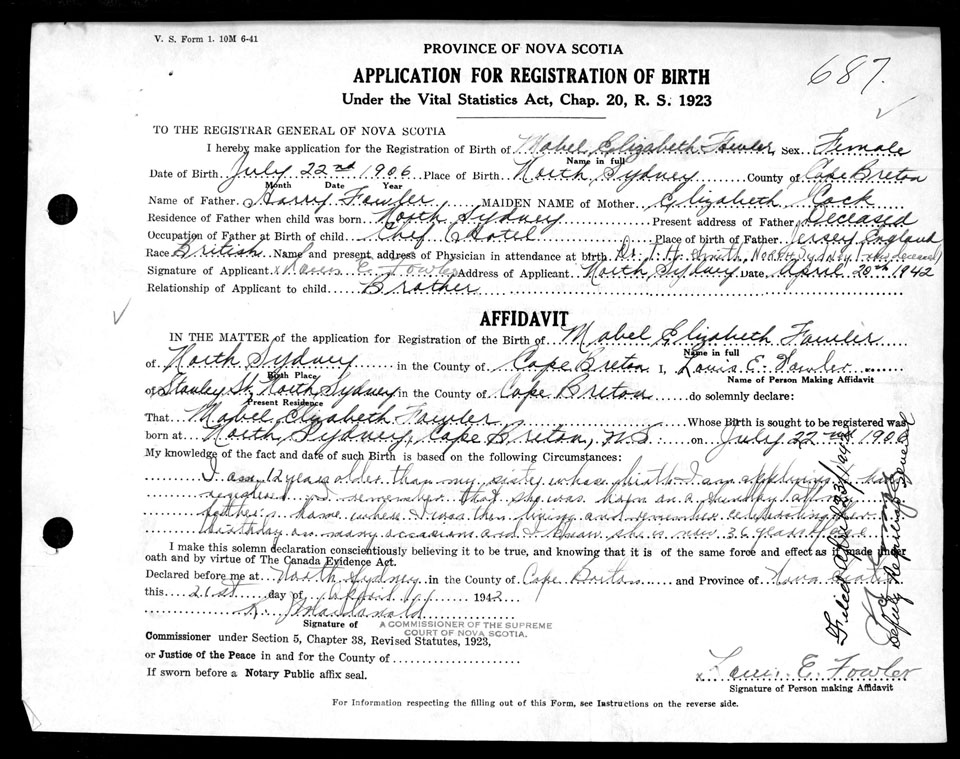 V. S. Form 1. 10M 6-41
PROVINCE OF NOVA SCOTIA
687.
APPLICATION FOR REGISTRATION OF BIRTH
Under the Vital Statistics Act, Chap. 20, R. S. 1923
TO THE REGISTRAR GENERAL OF NOVA SCOTIA
I hereby make application for the Registration of Birth of Mabel Elizabeth Fowler Sex Female
Name in full
Date of Birth July 22nd 1906 Place of Birth North Sydney County of Cape Breton
Month Date Year
Name of Father Harry Fowler MAIDEN NAME of Mother Elizabeth Cock
Residence of Father when child was born North Sydney Present address of Father Deceased
Occupation of Father at Birth of child Chef Hotel Place of birth of Father Jersey England
Race British Name and present address of Physician in attendance at birth Dr. Smith, North Sydney (deceased)
Signature of Applicant x E. Fowler Address of Applicant North Sydney Date April 20th 1942
Relationship of Applicant to child Brother
AFFIDAVIT
IN THE MATTER of the application for Registration of the Birth of Mabel Elizabeth Fowler
Name in full
of North Sydney in the County of Cape Breton I, Louis E. Fowler
Birth Place
Name of Person Making Affidavit
of Stanley St. North Sydney in the County of Cape Breton do solemnly declare:
Present Residence
That Mabel Elizabeth Fowler Whose Birth is sought to be registered was
born at North Sydney, Cape Breton, N.S. on July 22nd 1906
My knowledge of the fact and date of such Birth is based on the following Circumstances:
I am 12 years older than my sister whose birth I am applying to have
registered I remember that she was born on a Sunday at my
father's home where I was then living and remember celebrating her
birthday on many occasions and I know she is now 36 years of age
I make this solemn declaration conscientiously believing it to be true, and knowing that it is of the same force and effect as if made under
oath and by virtue of The Canada Evidence Act.
Declared before me at North Sydney in the County of Cape Breton and Province of Nova Scotia
this 21st day of April 1942
MacDonald
Signature of A COMMISSIONER OF THE SUPREME
COURT OF NOVA SCOTIA.
Commissioner under Section 5, Chapter 38, Revised Statutes, 1923,
or Justice of the Peace in and for the County of
If sworn before a Notary Public affix seal.
x Louis E. Fowler
Signature of Person making Affidavit
For Information respecting the filling out of this Form, see Instructions on the reverse side.
Filed April 23/1942
Deputy Registrar General